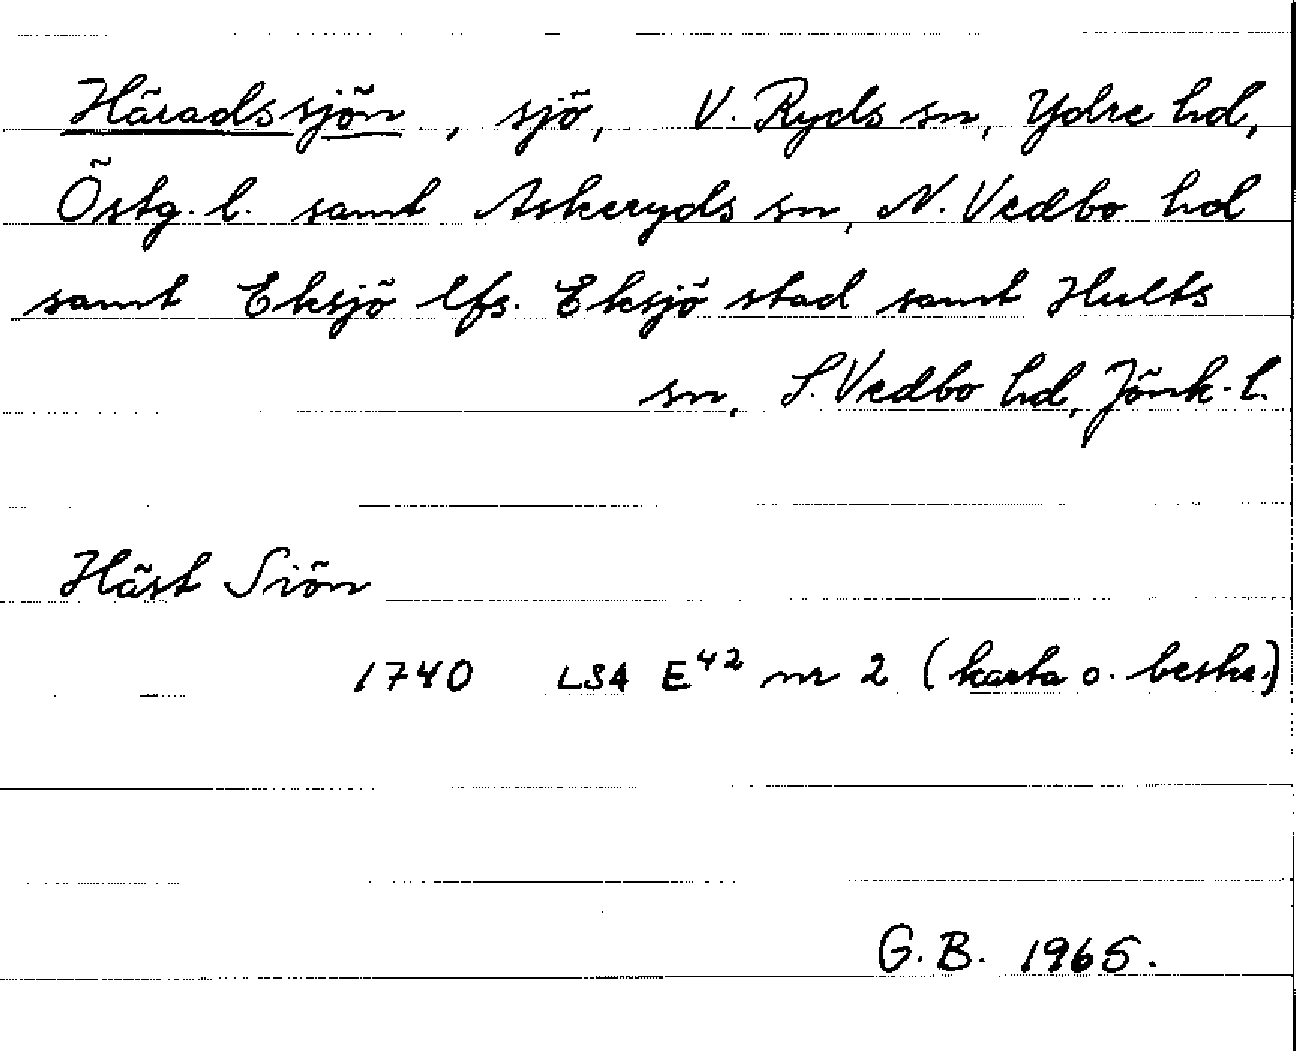 Häradssjön, sjö, V. Ryds sn, Ydre hd,
Östg. l. samt Askeryds sn, N. Vedbo hd
samt Eksjö lfs. Eksjö stad samt Hults
sn, S. Vedbo hd, Jönk. l.
Häst Siön
1740 LSA E⁴² nr 2 (karta o. beskr.)
G. B. 1965.